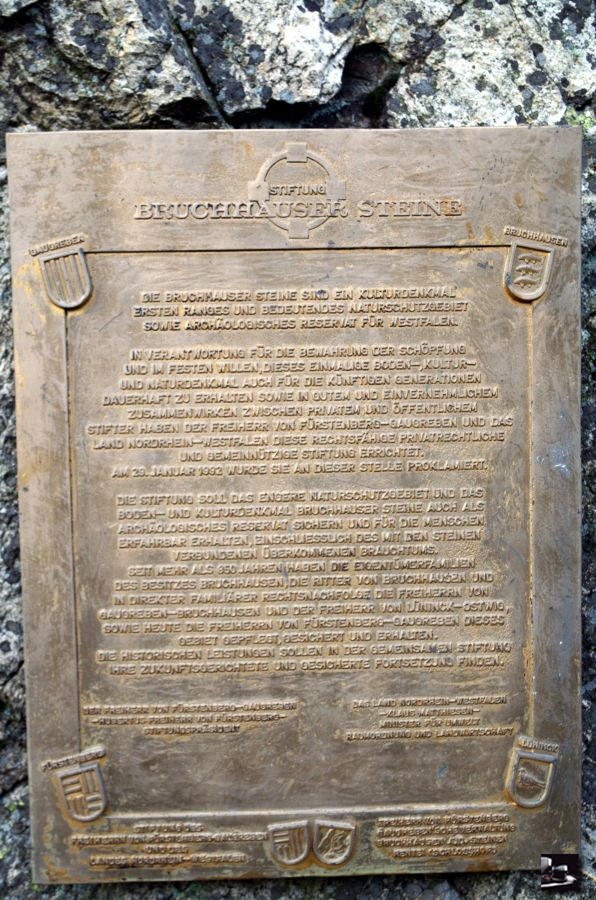 STIFTUNG
BRUCHHAUSER STEINE
GAUGREBEN
BRUCHHAUSEN
DIE BRUCHHAUSER STEINE SIND EIN KULTURDENKMAL
ERSTEN RANGES UND BEDEUTENDES NATURSCHUTZGEBIET
SOWIE ARCHÄOLOGISCHES RESERVAT FÜR WESTFALEN.
IN VERANTWORTUNG FÜR DIE BEWAHRUNG DER SCHÖPFUNG
UND IM FESTEN WILLEN, DIESES EINMALIGE BODEN-, KULTUR-
UND NATURDENKMAL AUCH FÜR DIE KÜNFTIGEN GENERATIONEN
DAUERHAFT ZU ERHALTEN SOWIE IN GUTEM UND EINVERNEHMLICHEM
ZUSAMMENWIRKEN ZWISCHEN PRIVATEM UND ÖFFENTLICHEM
STIFTER HABEN DER FREIHERR VON FÜRSTENBERG-GAUGREBEN UND DAS
LAND NORDRHEIN-WESTFALEN DIESE RECHTSFÄHIGE PRIVATRECHTLICHE
UND GEMEINNÜTZIGE STIFTUNG ERRICHTET.
AM 29. JANUAR 1992 WURDE SIE AN DIESER STELLE PROKLAMIERT.
DIE STIFTUNG SOLL DAS ENGERE NATURSCHUTZGEBIET UND DAS
BODEN- UND KULTURDENKMAL BRUCHHAUSER STEINE AUCH ALS
ARCHÄOLOGISCHES RESERVAT SICHERN UND FÜR DIE MENSCHEN
ERFAHRBAR ERHALTEN, EINSCHLIESSLICH DES MIT DEN STEINEN
VERBUNDENEN ÜBERKOMMENEN BRAUCHTUMS.
SEIT MEHR ALS 350 JAHREN HABEN DIE EIGENTÜMERFAMILIEN
DES BESITZES BRUCHHAUSEN, DIE RITTER VON BRUCHHAUSEN UND
IN DIREKTER FAMILIÄRER RECHTSNACHFOLGE DIE FREIHERRN VON
GAUGREBEN-BRUCHHAUSEN UND DER FREIHERR VON LÜNINCK-OSTWIG,
SOWIE HEUTE DIE FREIHERRN VON FÜRSTENBERG-GAUGREBEN DIESES
GEBIET GEPFLEGT, GESICHERT UND ERHALTEN.
DIE HISTORISCHEN LEISTUNGEN SOLLEN IN DER GEMEINSAMEN STIFTUNG
IHRE ZUKUNFTSGERICHTETE UND GESICHERTE FORTSETZUNG FINDEN.
DER FREIHERR VON FÜRSTENBERG-GAUGREBEN
-HUBERTUS FREIHERR VON FÜRSTENBERG-
STIFTUNGSPRÄSIDENT
DAS LAND NORDRHEIN-WESTFALEN
-KLAUS MATTHIESEN-
MINISTER FÜR UMWELT
RAUMORDNUNG UND LANDWIRTSCHAFT
FÜRSTENBERG
LÜNINCK
STIFTUNG DES
FREIHERRN VON FÜRSTENBERG-GAUGREBEN
UND DES
LANDES NORDRHEIN-WESTFALEN
FREIHERR VON FÜRSTENBERG